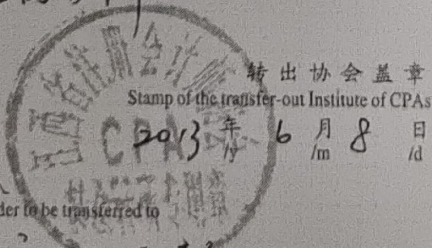 转出协会盖章
Stamp of the transfer-out Institute of CPAs
2013 年 6 月 8 日
/y /m /d
江西省注册会计师
CPA
der to be transferred to